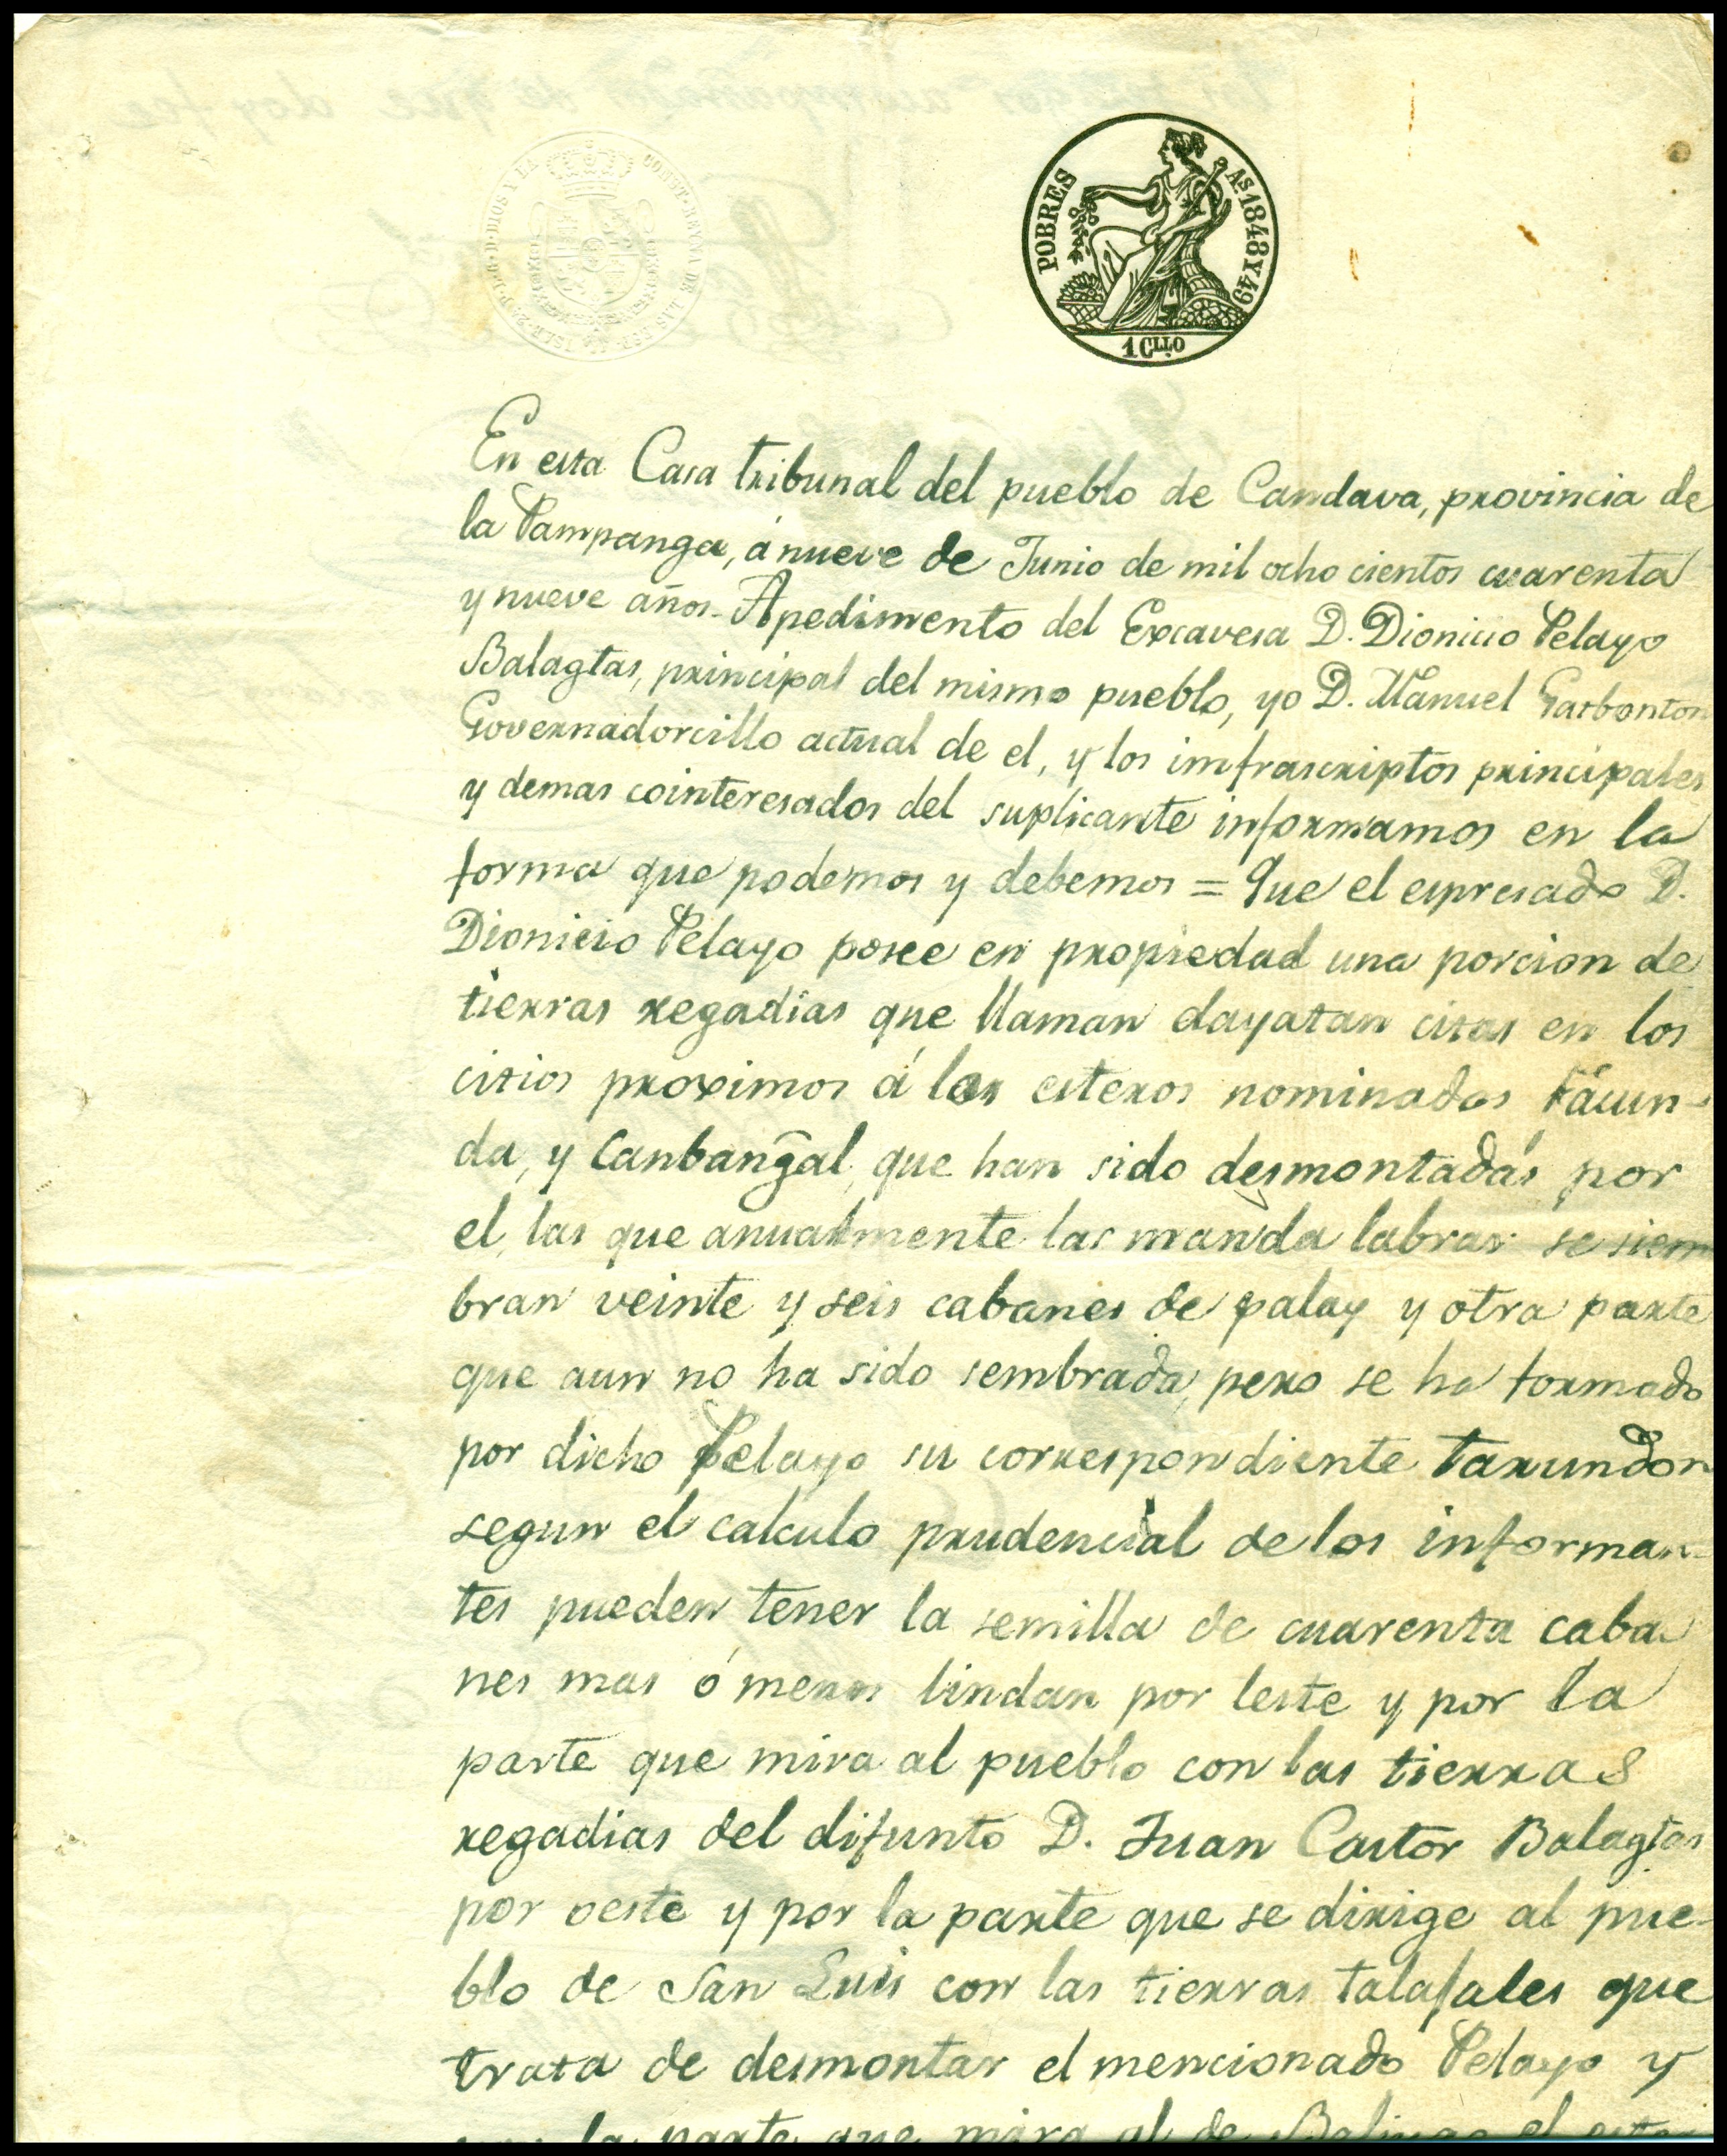 POBRES
AS. 1848 Y 49
1 CLLO
En esta Casa tribunal del pueblo de Candava, provincia de
la Pampanga, á nueve de Junio de mil ocho cientos cuarenta
y nueve años. Apedimento del Excavesa D. Dionicio Pelayo
Balagtas, principal del mismo pueblo, yo D. Manuel Garbonton
Governadorcillo actual de el, y los imfrascriptos principales
y demas cointeresados del suplicante informamos en la
forma que podemos y debemos = Que el espresado D.
Dionicio Pelayo posee en propiedad una porcion de
tierras regadias que llaman dayatan citas en los
citios proximos á los esteros nominados Fácun-
da, y Canbangal, que han sido desmontadas por
el, las que anualmente las manda labrar se siem
bran veinte y seis cabanes de palay y otra parte
que aun no ha sido sembrada, pero se ha formado
por dicho Pelayo su correspondiente tarundon
segun el calculo prudencial de los informan-
tes pueden tener la semilla de cuarenta caba
nes mas ó menos lindan por leste y por la
parte que mira al pueblo con las tierras
regadias del difunto D. Juan Castor Balagtas
por oeste y por la parte que se dirige al pue-
blo de San Luis con las tierras talajales que
trata de desmontar el mencionado Pelayo y
la parte que mira al de